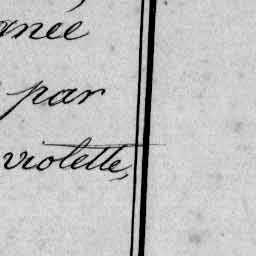 née
par
violette,